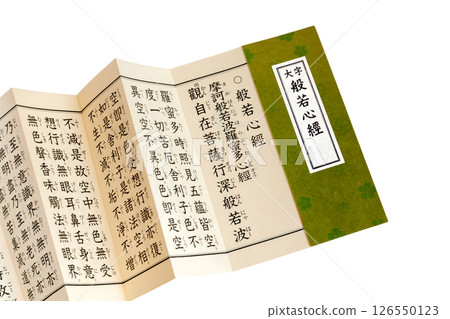 大字
般若心經
○般若心經
摩訶般若波羅蜜多心經
觀自在菩薩行深般若波
羅蜜多時照見五蘊皆空
度一切苦厄舍利子色不
異空空不異色色即是空
空即是色受想行識亦復
如是舍利子是諸法空相
不生不滅不垢不淨不增
不減是故空中無色無受
想行識無眼耳鼻舌身意
無色聲香味觸法無眼界
乃至無意識界無無明亦
無無明盡乃至無老死亦
pixta.jp - 126550123